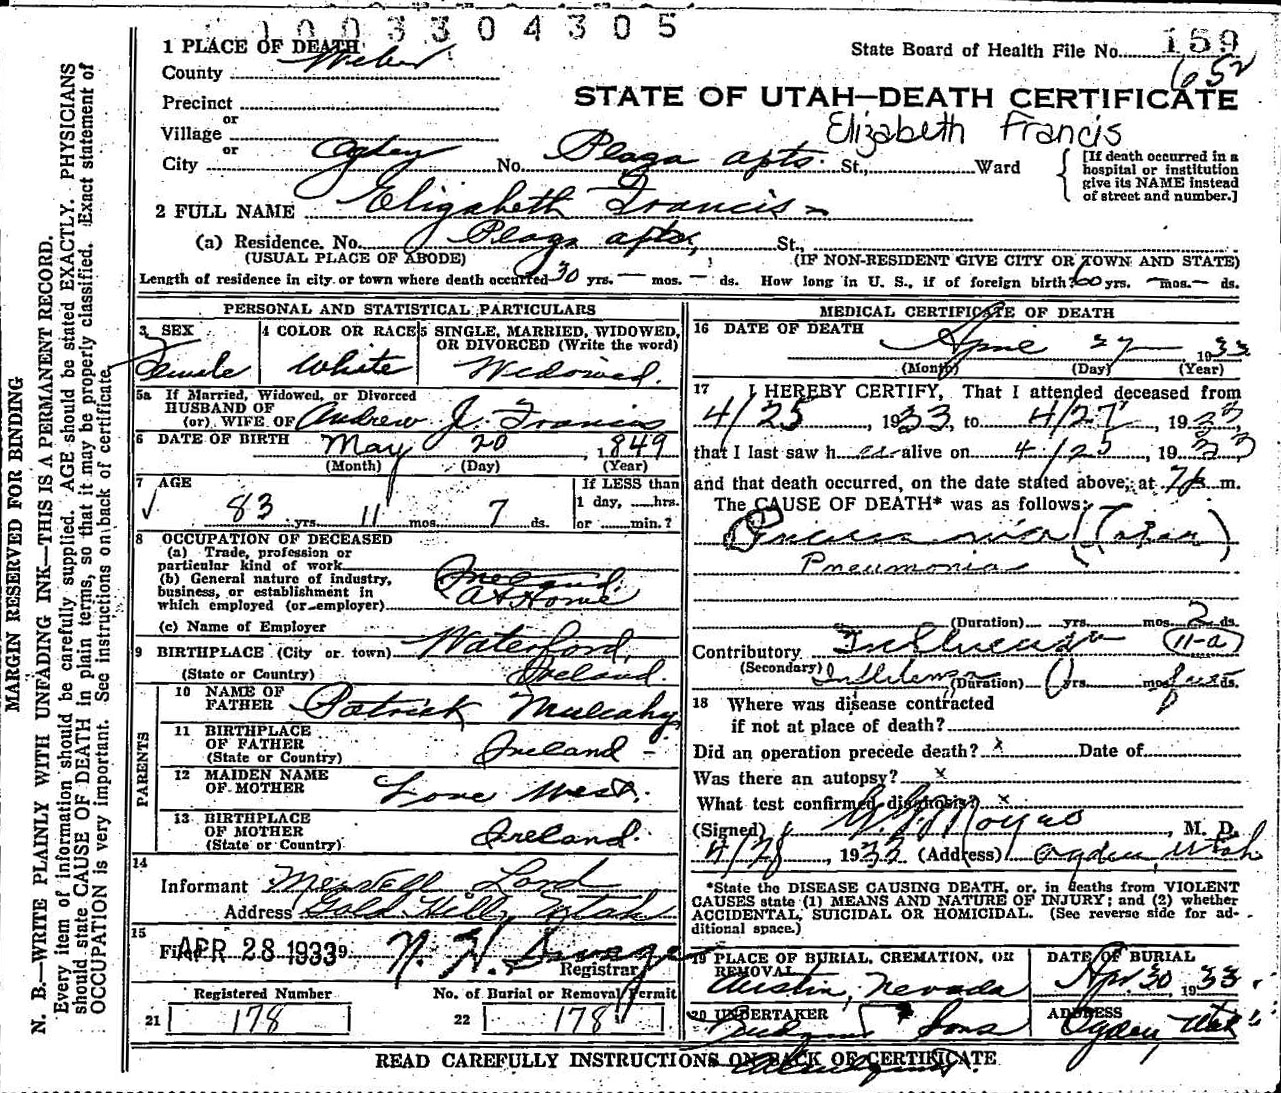 1003304305
1 PLACE OF DEATH
State Board of Health File No. 159
County Weber
652
STATE OF UTAH—DEATH CERTIFICATE
Precinct
or
Elizabeth Francis
Village
or
City Ogden No. Plaza apts. St., Ward
[If death occurred in a
hospital or institution
give its NAME instead
of street and number.]
2 FULL NAME Elizabeth Francis
(a) Residence. No. Plaza apts, St.,
(USUAL PLACE OF ABODE) (IF NON-RESIDENT GIVE CITY OR TOWN AND STATE)
Length of residence in city or town where death occurred 30 yrs. — mos. — ds. How long in U. S., if of foreign birth? 60 yrs. — mos. — ds.
PERSONAL AND STATISTICAL PARTICULARS
3 SEX
Female
4 COLOR OR RACE
White
5 SINGLE, MARRIED, WIDOWED,
OR DIVORCED (Write the word)
Widowed.
5a If Married, Widowed, or Divorced
HUSBAND OF
(or) WIFE OF Andrew J. Francis
6 DATE OF BIRTH May 20, 1849
(Month) (Day) (Year)
7 AGE
83 yrs. 11 mos. 7 ds.
If LESS than
1 day, hrs.
or min.?
8 OCCUPATION OF DECEASED
(a) Trade, profession or
particular kind of work
(b) General nature of industry,
business, or establishment in
which employed (or employer) At Home
(c) Name of Employer
9 BIRTHPLACE (City or town) Waterford,
(State or Country) Ireland.
PARENTS
10 NAME OF
FATHER Patrick Mulcahy
11 BIRTHPLACE
OF FATHER
(State or Country) Ireland —
12 MAIDEN NAME
OF MOTHER Love West.
13 BIRTHPLACE
OF MOTHER
(State or Country) Ireland.
14
Informant Lord
Address Gold Hill, Utah
15
Filed APR 28 1933 N. H. Savage
Registrar
Registered Number No. of Burial or Removal Permit
21 178 22 178
MEDICAL CERTIFICATE OF DEATH
16 DATE OF DEATH
April 27 1933
(Month) (Day) (Year)
17 I HEREBY CERTIFY, That I attended deceased from
4/25, 1933, to 4/27, 1933
that I last saw h er alive on 4/25, 1933
and that death occurred, on the date stated above, at 7 p. m.
The CAUSE OF DEATH* was as follows:
Pneumonia (Lobar)
Pneumonia
(Duration) yrs. mos. 2 ds.
Contributory Influenza (11-a)
(Secondary) Influenza (Duration) yrs. mos. ds.
18 Where was disease contracted
if not at place of death?
Did an operation precede death? x Date of
Was there an autopsy? x
What test confirmed diagnosis? x
(Signed) Moyes, M. D.
4/28, 1933 (Address) Ogden, Utah
*State the DISEASE CAUSING DEATH, or, in deaths from VIOLENT
CAUSES state (1) MEANS AND NATURE OF INJURY; and (2) whether
ACCIDENTAL, SUICIDAL OR HOMICIDAL. (See reverse side for ad-
ditional space.)
19 PLACE OF BURIAL, CREMATION, OR
REMOVAL
Austin, Nevada
DATE OF BURIAL
Apr 30, 1933
20 UNDERTAKER
Sons
ADDRESS
Ogden, Utah
READ CAREFULLY INSTRUCTIONS ON BACK OF CERTIFICATE
MARGIN RESERVED FOR BINDING
N. B.—WRITE PLAINLY WITH UNFADING INK—THIS IS A PERMANENT RECORD.
Every item of information should be carefully supplied. AGE should be stated EXACTLY. PHYSICIANS
should state CAUSE OF DEATH in plain terms, so that it may be properly classified. Exact statement of
OCCUPATION is very important. See instructions on back of certificate.